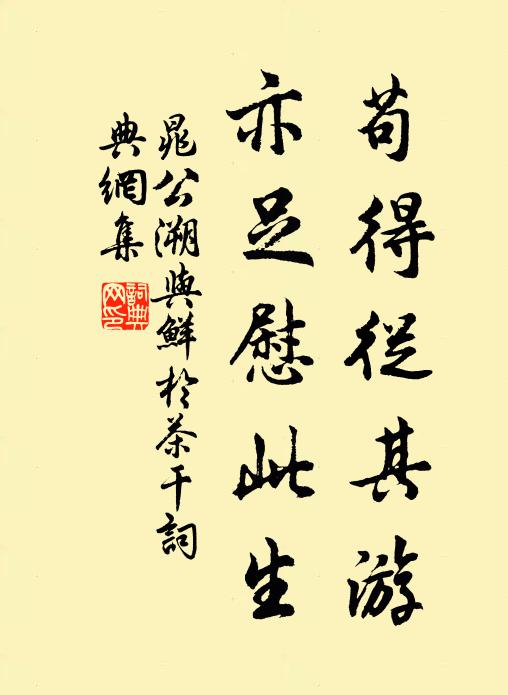 苟得從其游
亦足慰此生
晁公溯與鮮於茶干詞
典網集
詞典
网印